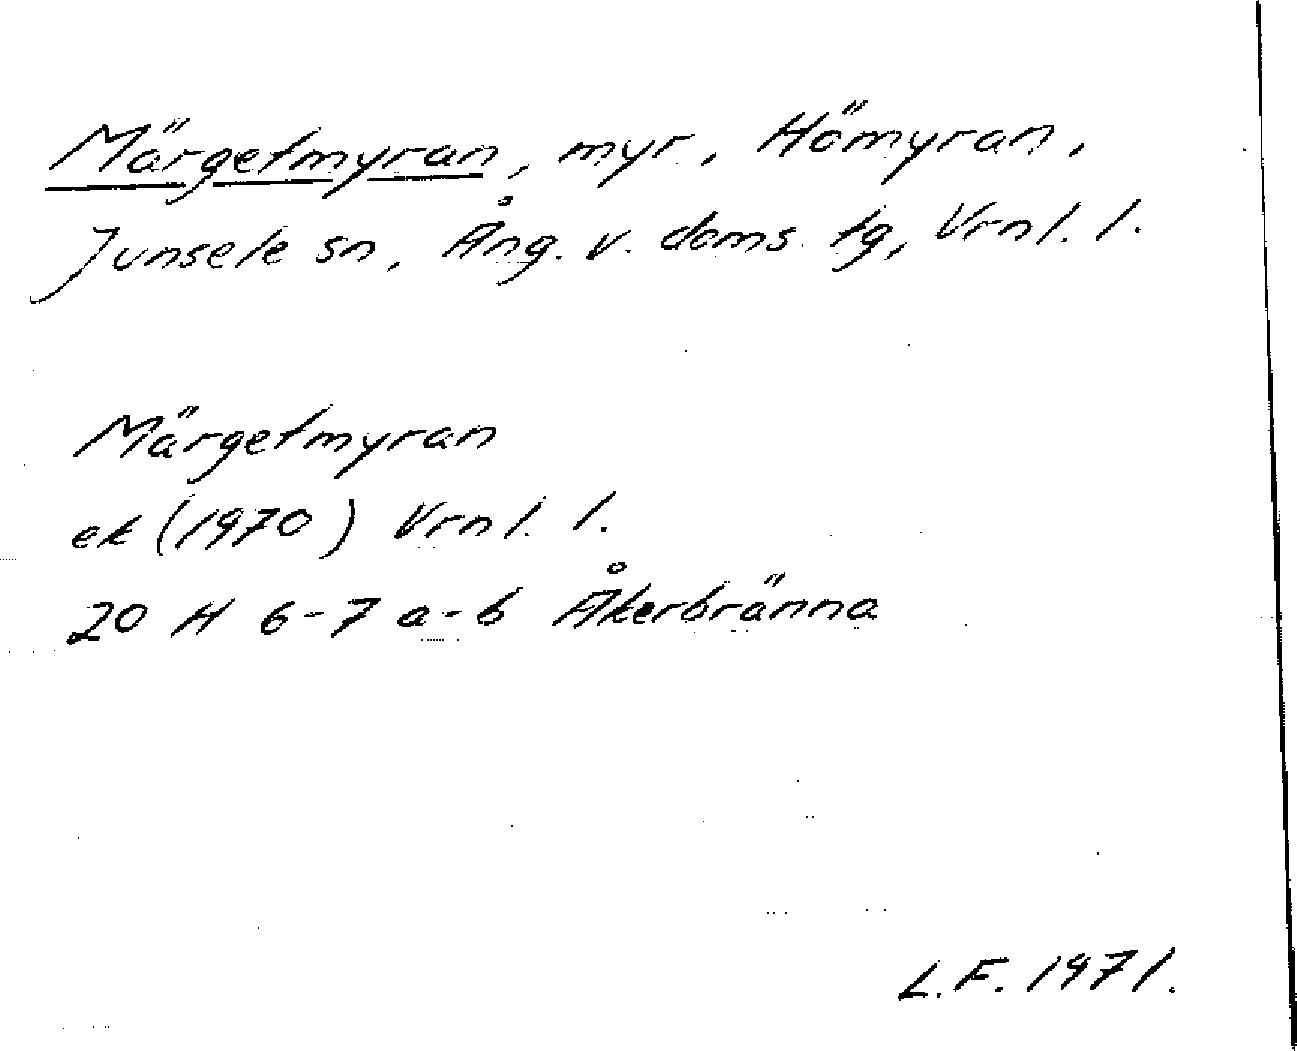 Märgetmyran, myr, Hömyran,
Junsele sn, Ång. v. doms. tg, Vrnl. l.
Märgetmyran
ek (1970) Vrnl. l.
20 H 6-7 a-b Åkerbränna
L.F. 1971.